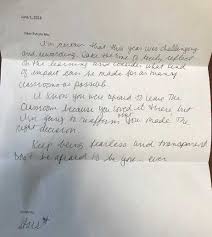 June 5, 2018
Dear Future Me,
I'm certain that this year was challenging
and rewarding. Take the time to truly reflect
on the learning and consider what kind
of impact can be made for as many
classrooms as possible.
I know you were afraid to leave the
classroom because you loved it there but
I'm going to reaffirm that you made the
right decision.
Keep being fearless and transparent
Don't be afraid to be you... ever